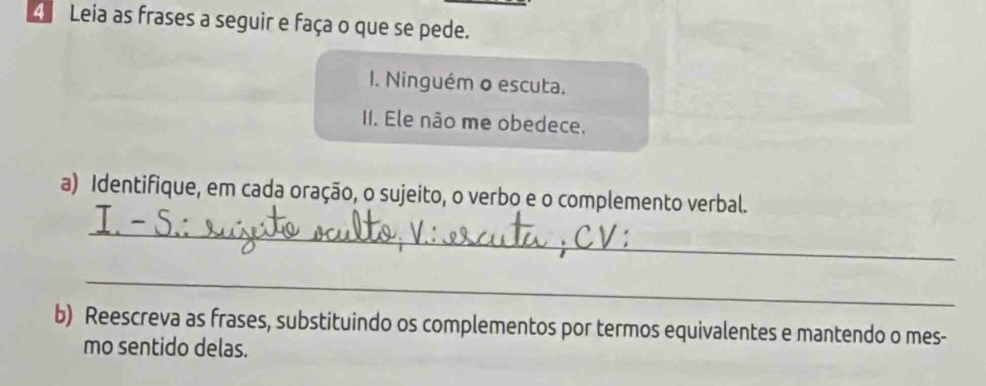 4 Leia as frases a seguir e faça o que se pede.
I. Ninguém o escuta.
II. Ele não me obedece.
a) Identifique, em cada oração, o sujeito, o verbo e o complemento verbal.
I. - S.: sujeito oculto; V.: escuta; CV:
b) Reescreva as frases, substituindo os complementos por termos equivalentes e mantendo o mes-
mo sentido delas.